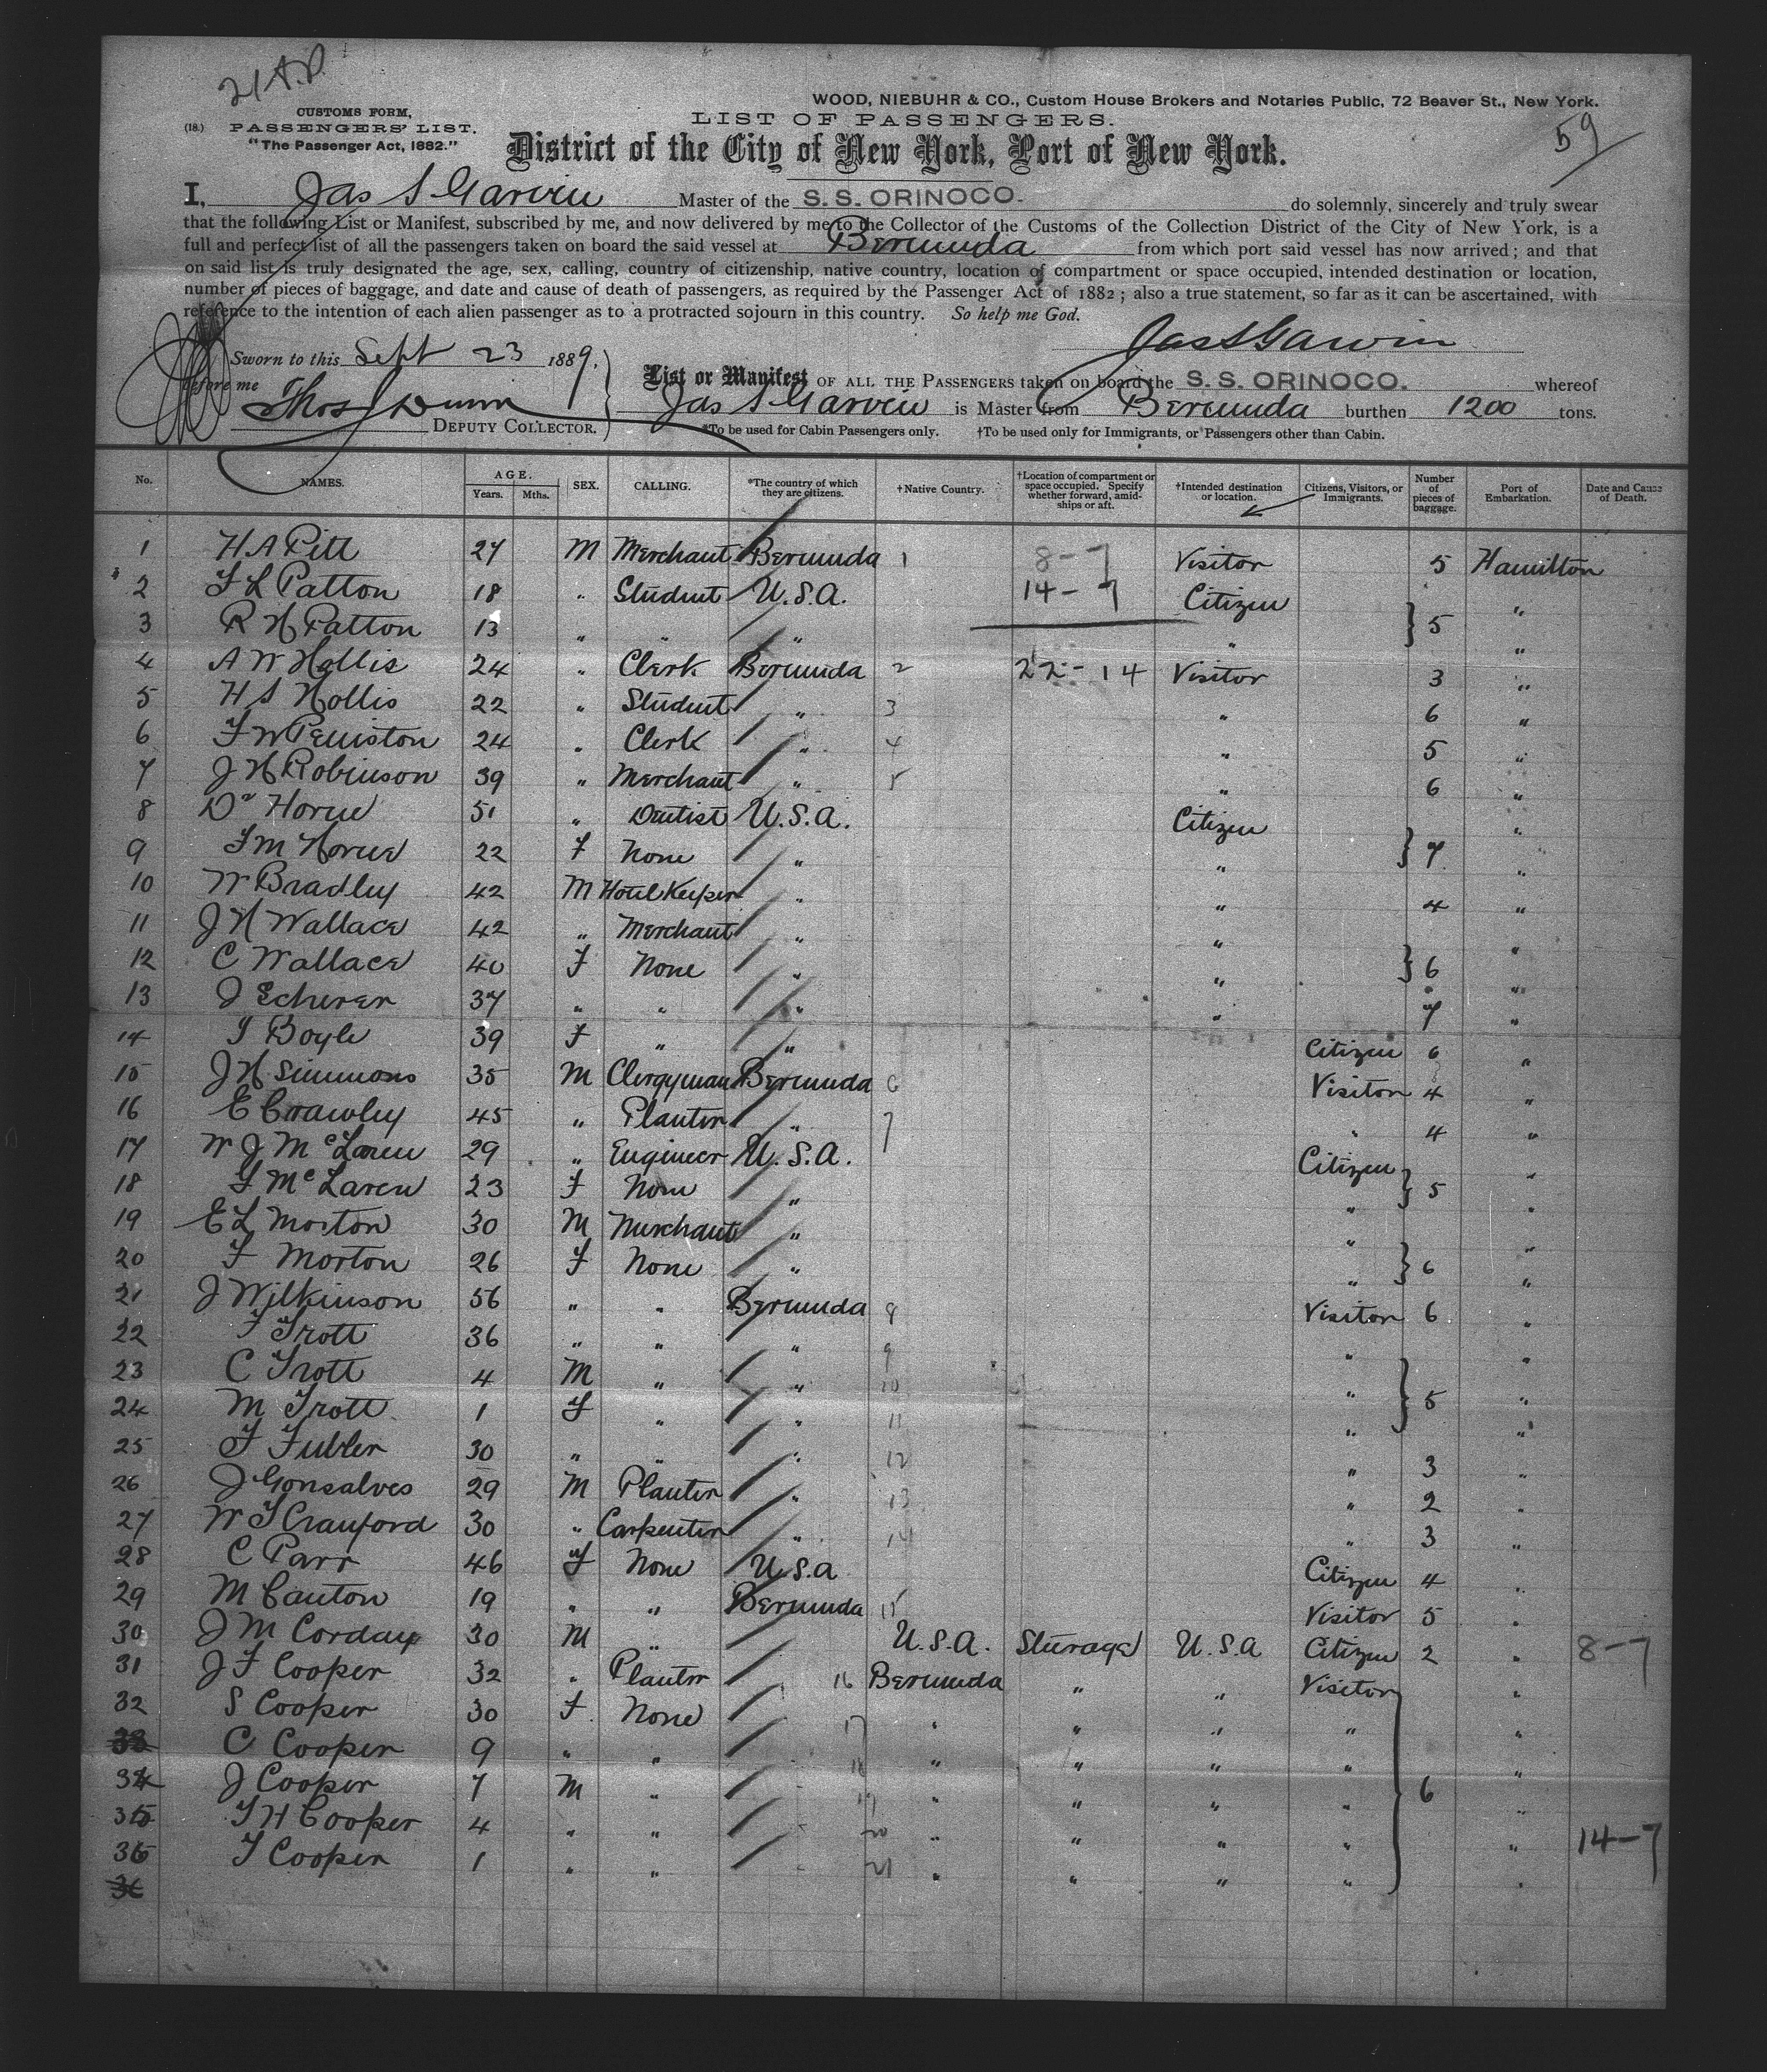 21 A.P.
WOOD, NIEBUHR & CO., Custom House Brokers and Notaries Public, 72 Beaver St., New York.
CUSTOMS FORM,
(18.) PASSENGERS' LIST.
"The Passenger Act, 1882."
LIST OF PASSENGERS.
59
District of the City of New York, Port of New York.
I, Jas S Garvin Master of the S.S. ORINOCO. do solemnly, sincerely and truly swear
that the following List or Manifest, subscribed by me, and now delivered by me to the Collector of the Customs of the Collection District of the City of New York, is a
full and perfect list of all the passengers taken on board the said vessel at Bermuda from which port said vessel has now arrived; and that
on said list is truly designated the age, sex, calling, country of citizenship, native country, location of compartment or space occupied, intended destination or location,
number of pieces of baggage, and date and cause of death of passengers, as required by the Passenger Act of 1882; also a true statement, so far as it can be ascertained, with
reference to the intention of each alien passenger as to a protracted sojourn in this country. So help me God.
Jas S Garvin
Sworn to this Sept 23 1889.
before me
Thos J Dunn
DEPUTY COLLECTOR.
List or Manifest OF ALL THE PASSENGERS taken on board the S.S. ORINOCO. whereof
Jas S Garvin is Master from Bermuda burthen 1200 tons.
*To be used for Cabin Passengers only. †To be used only for Immigrants, or Passengers other than Cabin.
No. NAMES. AGE. Years. Mths. SEX. CALLING. *The country of which they are citizens. †Native Country. †Location of compartment or space occupied. Specify whether forward, amidships or aft. †Intended destination or location. Citizens, Visitors, or Immigrants. Number of pieces of baggage. Port of Embarkation. Date and Cause of Death.
1 H A Pitt 27 M Merchant Bermuda 1 8-7 Visitor 5 Hamilton
2 F L Patton 18 " Student U.S.A. 14-7 Citizen "
3 R H Patton 13 " " " " } 5 "
4 A W Hollis 24 " Clerk Bermuda 2 22-14 Visitor 3 "
5 H S Hollis 22 " Student " 3 " 6 "
6 F W Peniston 24 " Clerk " 4 " 5 "
7 J H Robinson 39 " Merchant " 5 " 6 "
8 Dr Horne 51 " Dentist U.S.A. Citizen "
9 F M Horne 22 F None " " } 7 "
10 W Bradley 42 M Hotel Keeper " " 4 "
11 J H Wallace 42 " Merchant " " "
12 C Wallace 40 F None " " } 6 "
13 J Scherer 37 " " " " 7 "
14 I Boyle 39 F " " Citizen 6 "
15 J H Simmons 35 M Clergyman Bermuda 6 Visitor 4 "
16 E Crawley 45 " Planter " 7 " 4 "
17 W J McLaren 29 " Engineer U.S.A. Citizen "
18 F McLaren 23 F None " " } 5 "
19 E L Morton 30 M Merchant " " "
20 F Morton 26 F None " " } 6 "
21 J Wilkinson 56 " " Bermuda 8 Visitor 6 "
22 F Trott 36 " " " 9 " "
23 C Trott 4 M " " 10 " } 5 "
24 M Trott 1 F " " 11 " "
25 F Fubler 30 " " " 12 " 3 "
26 J Gonsalves 29 M Planter " 13 " 2 "
27 W T Cranford 30 " Carpenter " 14 " 3 "
28 C Parr 46 F None U.S.A Citizen 4 "
29 M Canton 19 " " Bermuda 15 Visitor 5 "
30 J M Corday 30 M " U.S.A. Steerage U.S.A Citizen 2 " 8-7
31 J F Cooper 32 " Planter 16 Bermuda " " Visitor "
32 S Cooper 30 F None 17 " " " " "
33 C Cooper 9 " " 18 " " " " "
34 J Cooper 7 M " 19 " " " " } 6 "
35 T H Cooper 4 " " 20 " " " " " 14-7
36 T Cooper 1 " " 21 " " " " "
36